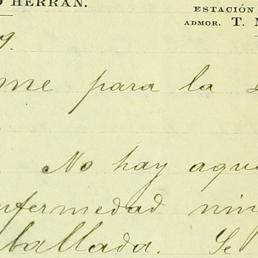 HERRAN.
ESTACIÓN
ADMOR. T.
9.
me para la
No hay aqu
nfermedad nin
ballada. Se